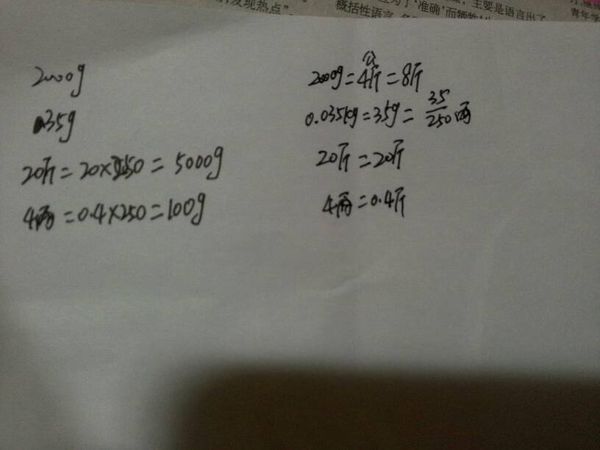 发现热点”
概括性语言
主要是语言出了
青年学
2000g
35g
20斤=20×250=5000g
4两=0.4×250=100g
2000g=4斤=8斤
0.035kg=35g=35/250两
20斤=20斤
4两=0.4斤